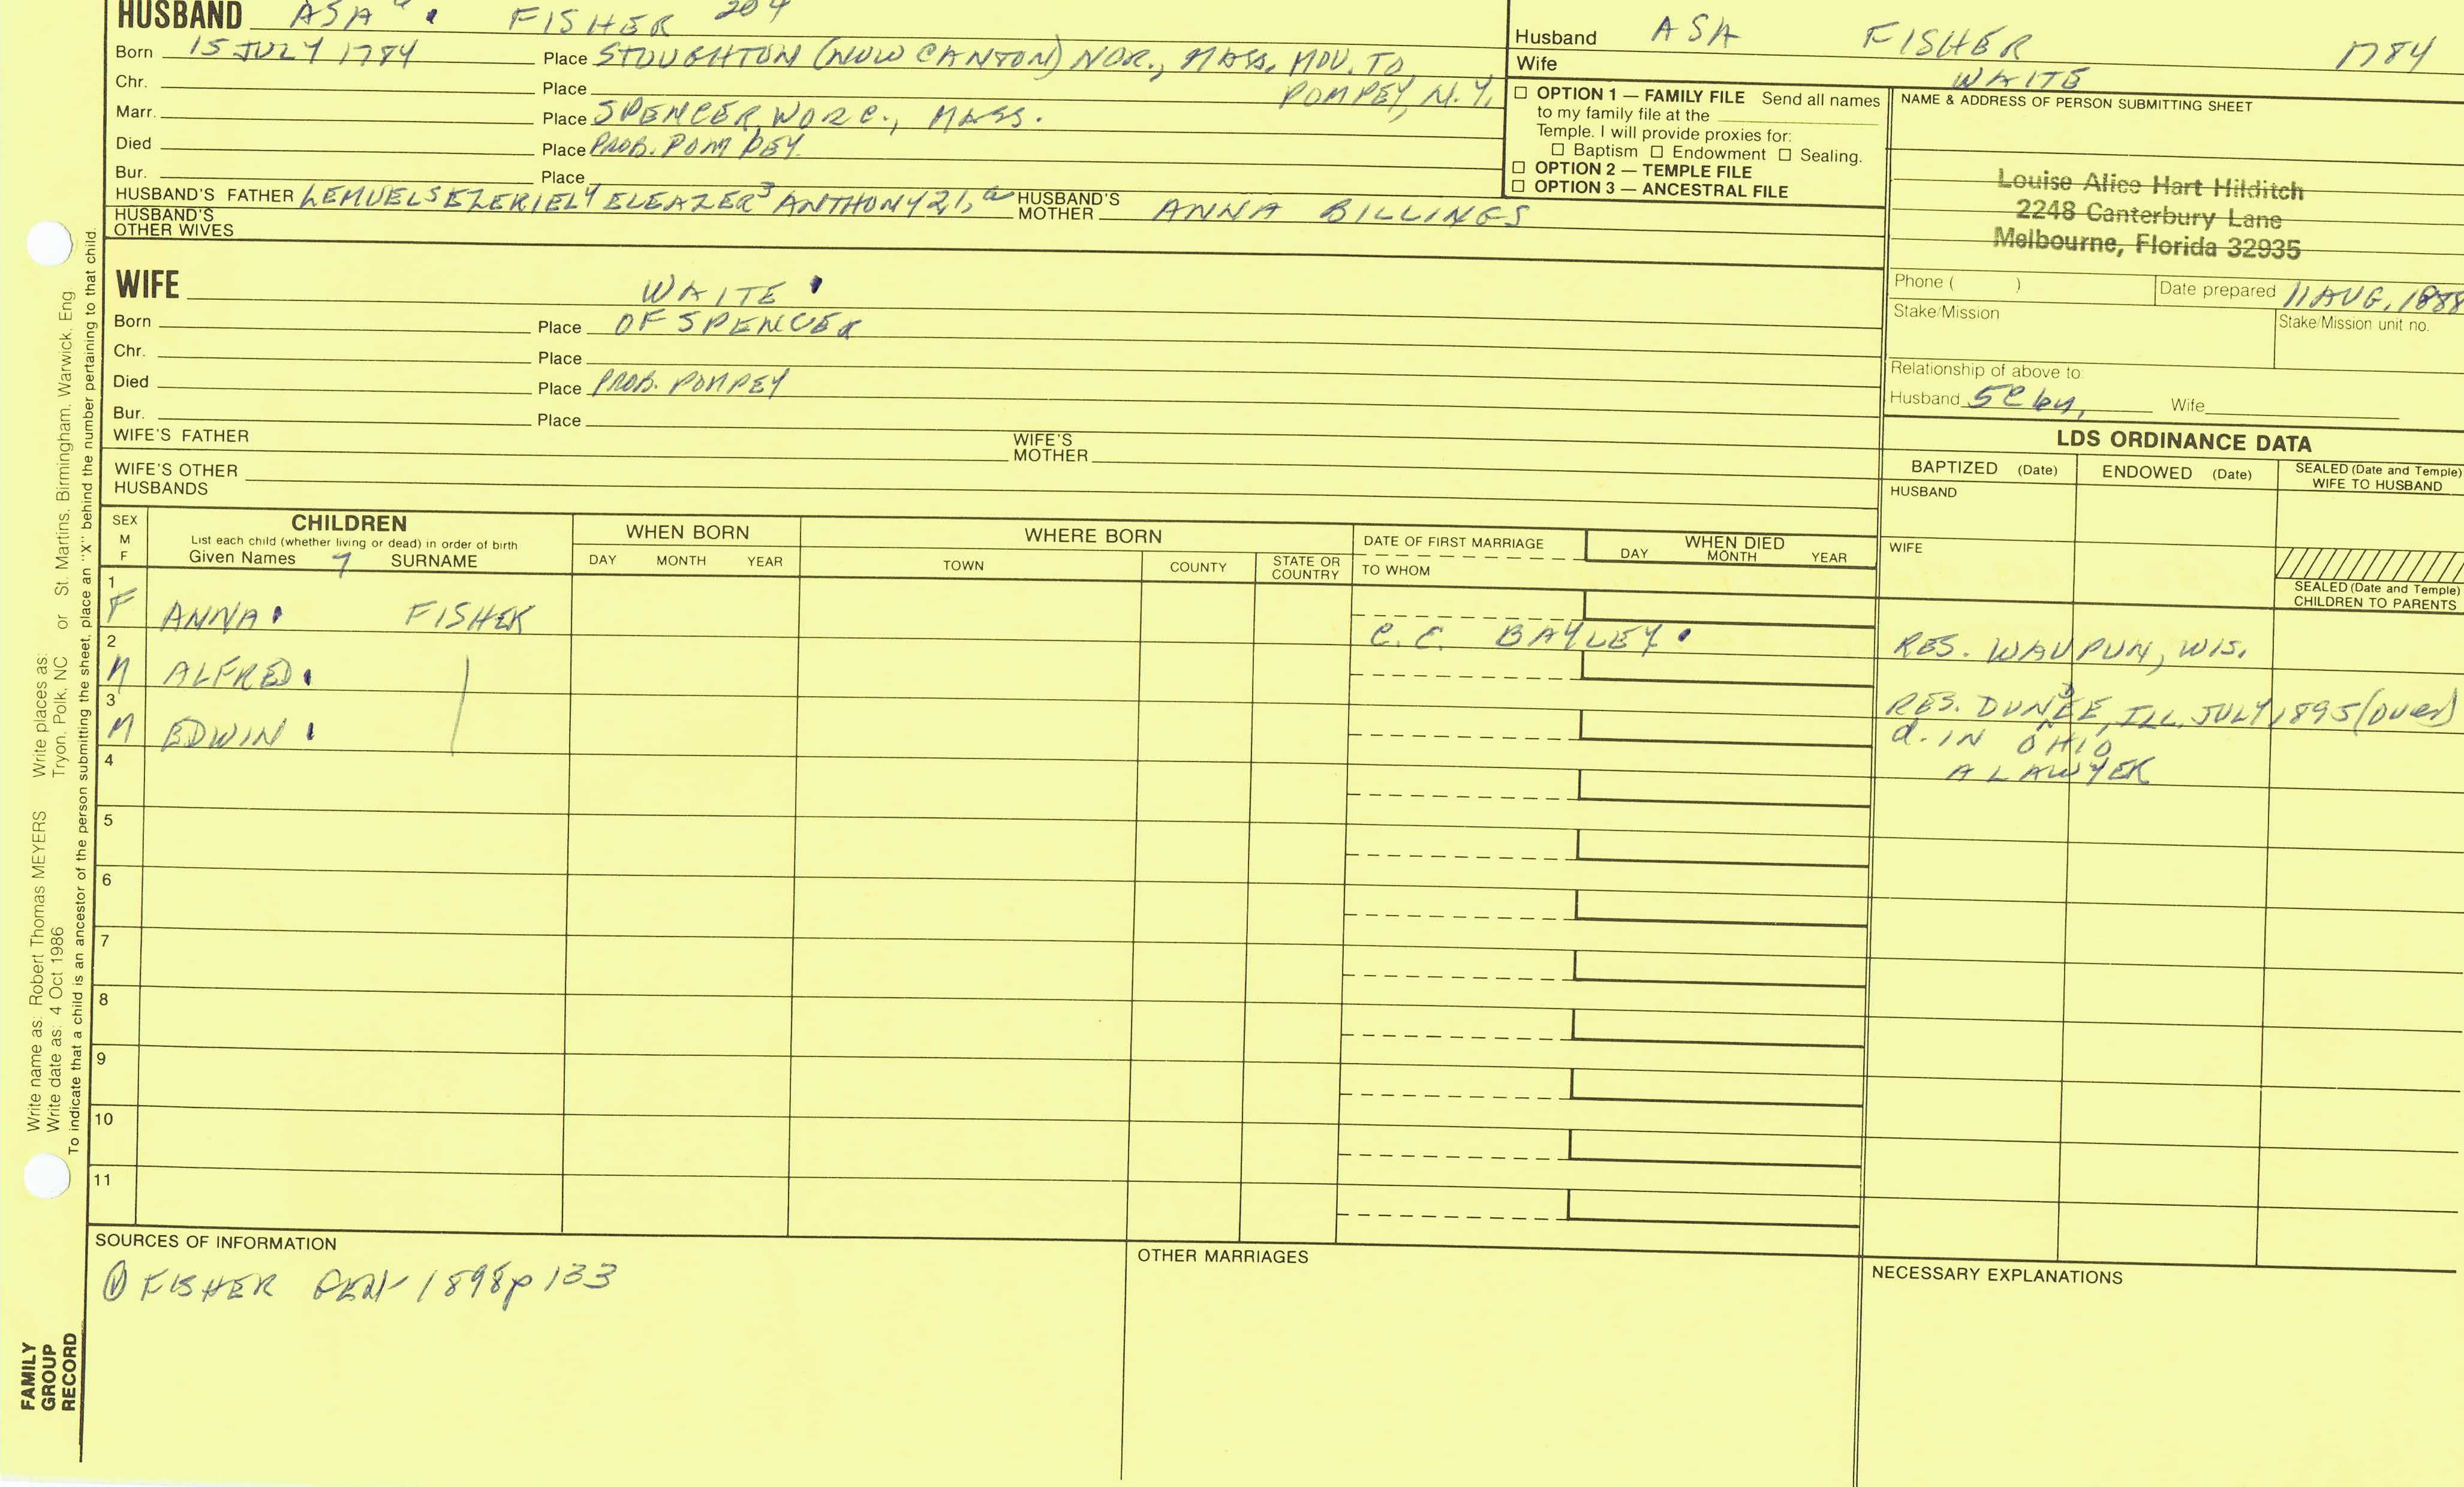 HUSBAND ASA 6 . FISHER 204
Born 15 JULY 1784 Place STOUGHTON (NOW CANTON) NOR., MASS. MOV. TO
Chr. Place POMPEY, N.Y.
Marr. Place SPENCER, WORC., MASS.
Died Place PROB. POMPEY
Bur. Place
HUSBAND'S FATHER LEMUEL5 EZEKIEL4 ELEAZER3 ANTHONY21, HUSBAND'S MOTHER ANNA BILLINGS
HUSBAND'S OTHER WIVES
WIFE WAITE
Born Place OF SPENCER
Chr. Place
Died Place PROB. POMPEY
Bur. Place
WIFE'S FATHER WIFE'S MOTHER
WIFE'S OTHER HUSBANDS
Husband ASA FISHER 1784
Wife WAITE
OPTION 1 — FAMILY FILE Send all names
to my family file at the
Temple. I will provide proxies for:
Baptism Endowment Sealing.
OPTION 2 — TEMPLE FILE
OPTION 3 — ANCESTRAL FILE
NAME & ADDRESS OF PERSON SUBMITTING SHEET
Louise Alice Hart Hilditch
2248 Canterbury Lane
Melbourne, Florida 32935
Phone ( ) Date prepared 11 AUG, 1988
Stake/Mission Stake/Mission unit no.
Relationship of above to:
Husband 5C Wife
LDS ORDINANCE DATA
BAPTIZED (Date) ENDOWED (Date) SEALED (Date and Temple)
WIFE TO HUSBAND
HUSBAND
WIFE
SEALED (Date and Temple)
CHILDREN TO PARENTS
SEX
M
F
CHILDREN
List each child (whether living or dead) in order of birth
Given Names 7 SURNAME
WHEN BORN
DAY MONTH YEAR
WHERE BORN
TOWN COUNTY STATE OR COUNTRY
DATE OF FIRST MARRIAGE
TO WHOM
WHEN DIED
DAY MONTH YEAR
1
F ANNA. FISHER C.C. BAYLEY. RES. WAUPUN, WIS.
2
M ALFRED. RES. DUNDEE, ILL. JULY 1895 (over)
3
M EDWIN . d. IN OHIO
A LAWYER
4
5
6
7
8
9
10
11
SOURCES OF INFORMATION
① FISHER GEN 1898 p 133
OTHER MARRIAGES
NECESSARY EXPLANATIONS
Write name as: Robert Thomas MEYERS Write places as:
Write date as: 4 Oct 1986 Tryon, Polk, NC or St. Martins, Birmingham, Warwick, Eng
To indicate that a child is an ancestor of the person submitting the sheet, place an "X" behind the number pertaining to that child.
FAMILY
GROUP
RECORD